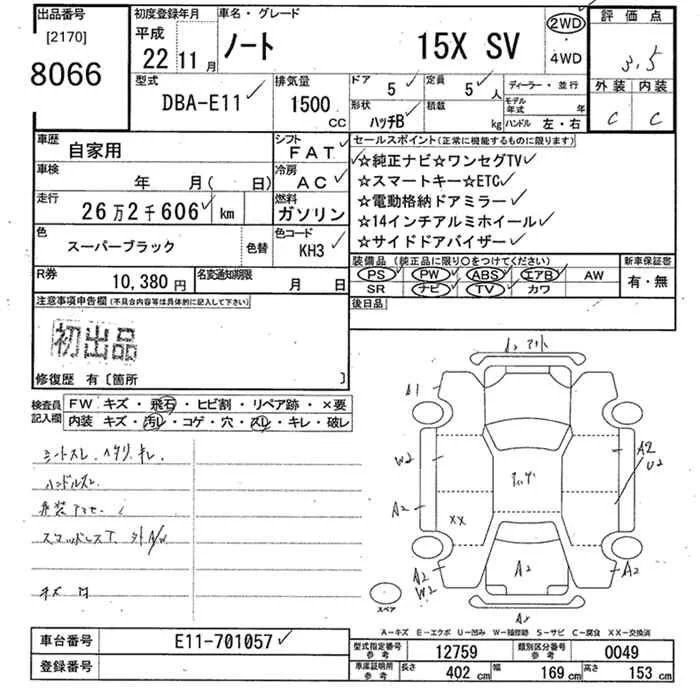 出品番号
[2170]
8066
初度登録年月
平成
22 11月
車名・グレード
ノート 15X SV
2WD
・
4WD
評価点
3.5
外装 内装
C C
型式
DBA-E11
排気量
1500
CC
ドア
5
定員
5人
ディーラー・並行
形状
ハッチB
積載
kg
モデル年式 年
ハンドル 左・右
車歴
自家用
シフト
FAT
車検
年 月( 日)
冷房
AC
走行
26万2千606 km
燃料
ガソリン
色
スーパーブラック
色替
色コード
KH3
R券
10,380円
名変通知期限
月 日
セールスポイント(正常に機能するものに限ります)
☆純正ナビ☆ワンセグTV
☆スマートキー☆ETC
☆電動格納ドアミラー
☆14インチアルミホイール
☆サイドドアバイザー
装備品(純正品に限り○をつけてください)
PS PW ABS エアB AW
SR ナビ TV カワ
新車保証書
有・無
後日品
注意事項申告欄(不具合内容等は具体的に記入して下さい)
初出品
修復歴 有〔箇所 〕
検査員記入欄
FW キズ・飛石・ヒビ割・リペア跡・×要
内装 キズ・汚レ・コゲ・穴・スレ・キレ・破レ
シートスレ
ハンドルスレ
A1
W2
A2
XX
A2
W2
A2
U2
A2
A2
スペア
A−キズ E−エクボ U−凹み W−補修跡 S−サビ C−腐食 XX−交換済
車台番号
E11-701057
登録番号
型式指定番号 参考
12759
類別区分番号 参考
0049
車庫証明用 参考
長さ 402 cm
幅 169 cm
高さ 153 cm